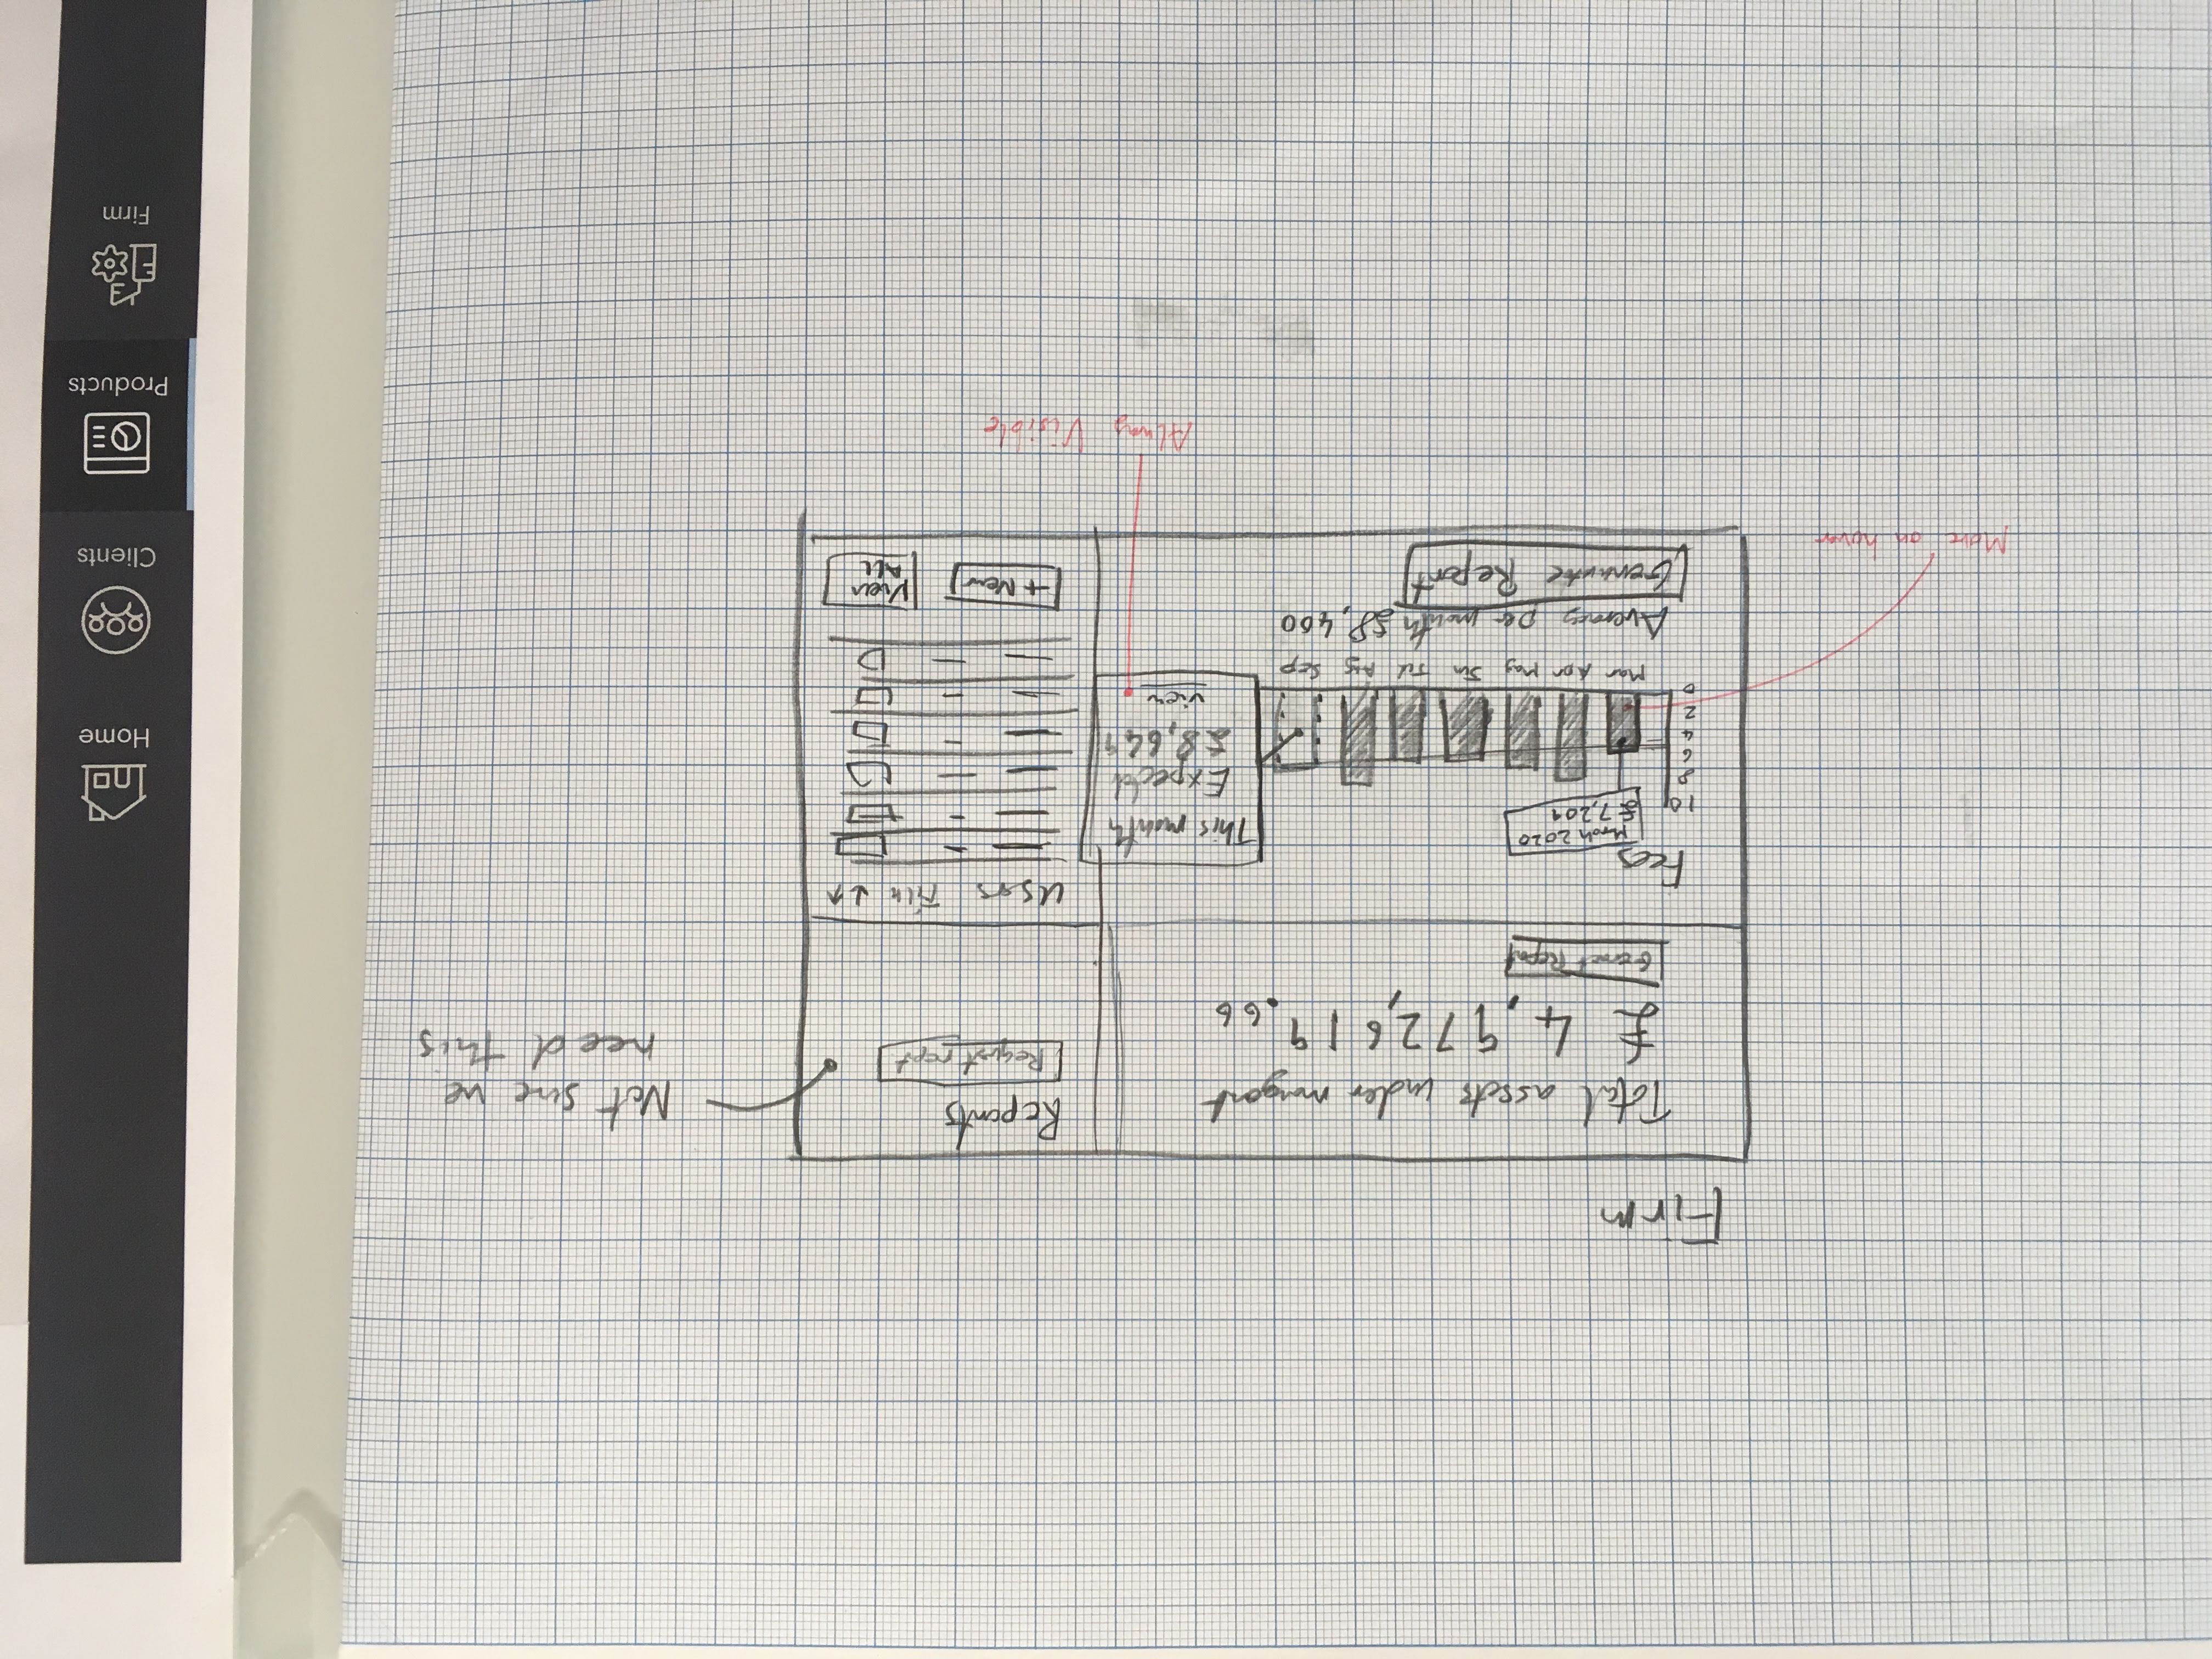 Firm
Total assets under
£ 4,972,619.66
Report
Reports
Request rept
Not sure we
need this
Fees
March 2020
£7,209
10
8
6
4
2
0
Mar Apr May Jun Jul Aug Sep
This month
Expectd
£8,649
view
Average per month £8,400
Generate Report
Users ↓↑
+ New
View
ALL
More on hover
Alway Visible
Home
Clients
Products
Firm